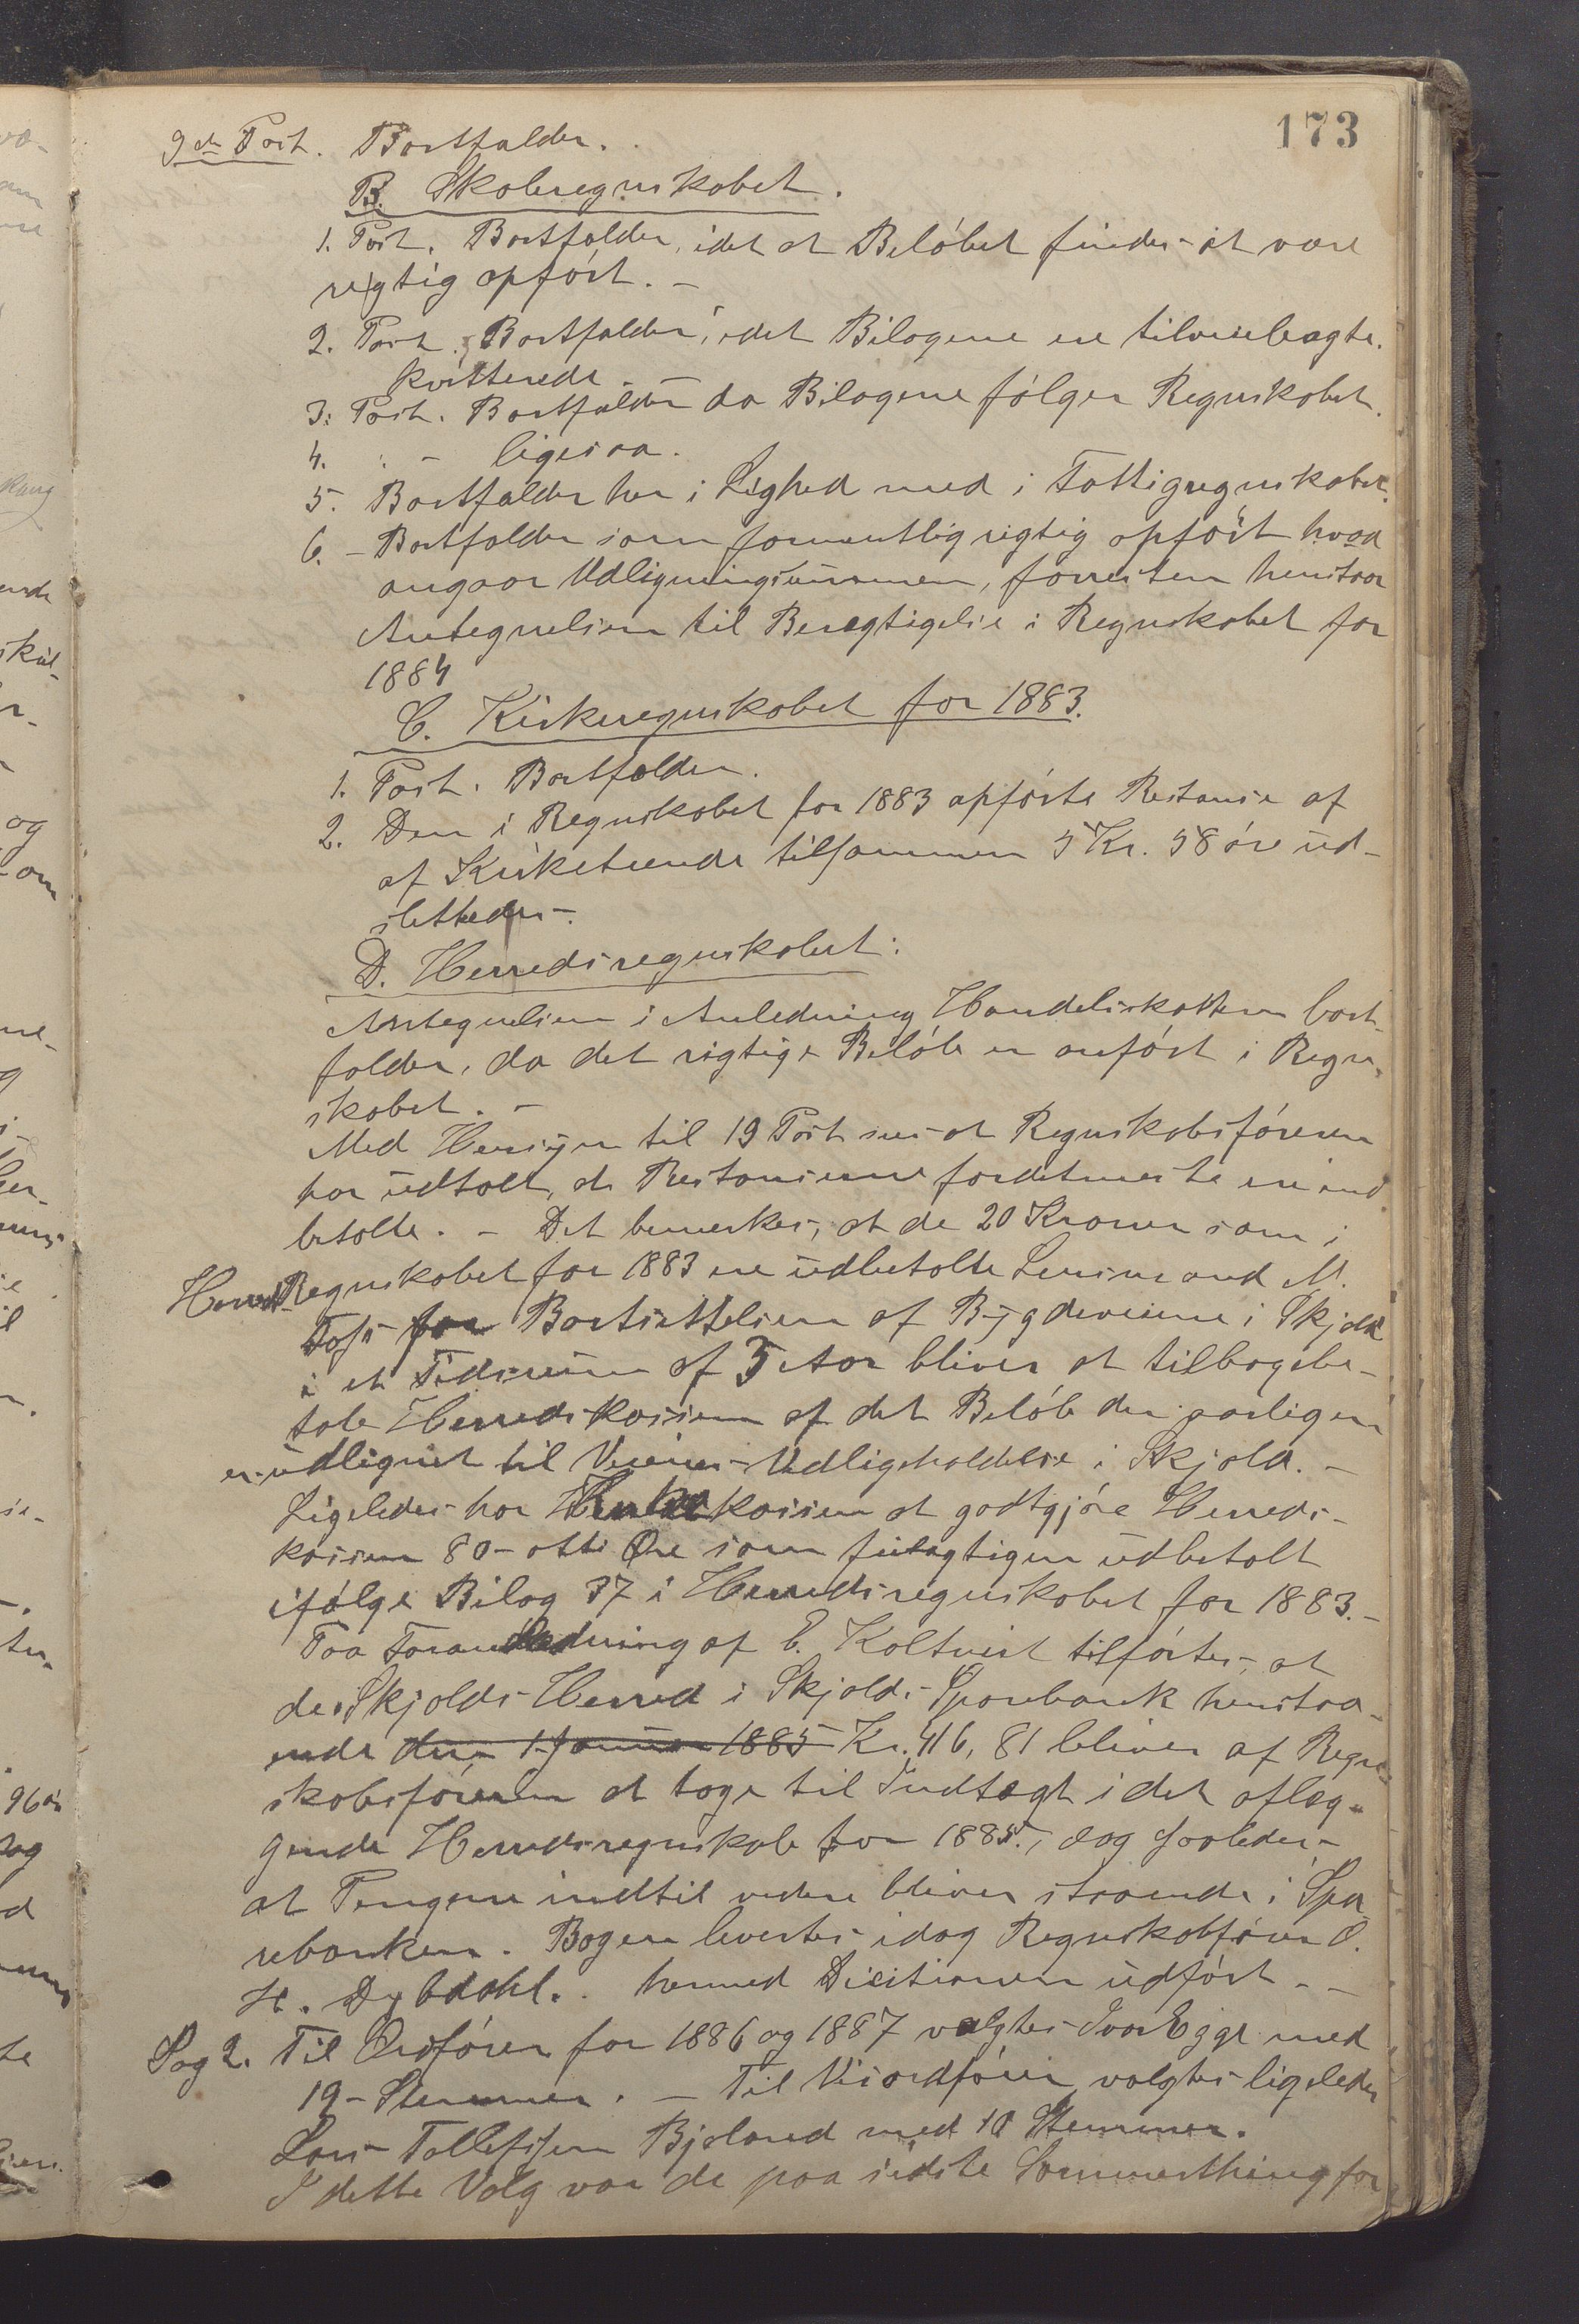 173
9de Post. Bortfalder.
B. Skoleregnskabet.
1. Post. Bortfalder, idet at Beløbet findes at være
rigtig opført. -
2. Post. Bortfalder, idet Bilagene ere tilveiebragte.
kvitterede.
3. Post. Bortfalder da Bilagene følger Regnskabet.
4. - ligesaa.
5. Bortfalder her i Lighed med i Fattigregnskabet.
6. - Bortfalder som formentlig rigtig opført hvad
angaar Udligningsummen, forresten henstaar
Antegnelsen til Beregtigelse i Regnskabet for
1884
C. Kirkeregnskabet for 1883.
1. Post. Bortfalder.
2. Den i Regnskabet for 1883 opførte Restanse af
af Kirketiende tilsammen 5 Kr. 58 øre ud-
slettedes-.
D. Herredsregnskabet:
Antegnelsen i Anledning Handelsskatten bort-
falder, da det rigtige Beløb er anført i Regn-
skabet. -
Med Hensyn til 19 Post sees at Regnskabsføreren
har udtalt, at Restanserne fordetmeste ere ind
betalte. - Det bemerkes, at de 20 Kroner som i
Herreds Regnskabet for 1883 ere udbetalte Lensmand M.
Foss for Bortsættelsen af Bygdeveiene i Skjold
i et Tidsrum af 5 Aar bliver at tilbagebe-
tale Herredskassen af det Beløb der aarligen
er udlignet til Veienes Vedligeholdelse i Skjold. -
Ligeledes har kassen at godtgjøre Herreds-
kassen 80 - otti Øre som feilagtigen udbetalt
ifølge Bilag 37 i Herredsregnskabet for 1883. -
Paa Foranledning af E. Koltveit tilførtes, at
de Skjolds Herred i Skjolds Sparebank henstaa-
ende den 1 Januar 1885 Kr. 416,81 bliver af Regn-
skabsføreren at tage til Indtægt i det aflæg-
gende Herredsregnskab for 1885., dog saaledes
at Pengene indtil videre bliver staaende i Spa-
rebanken. Bogen levertes idag Regnskabfører O.
H. Dybdahl. hermed Disitionen udført. -
Sag 2. Til Ordfører for 1886 og 1887 valgtes Ivar Egge med
19 - Stemmer. - Til Viseordfører valgtes ligeledes
Lars Tollefsen Bjeland med 10 Stemmer.
I dette Valg var de paa sidste Sommerthing for